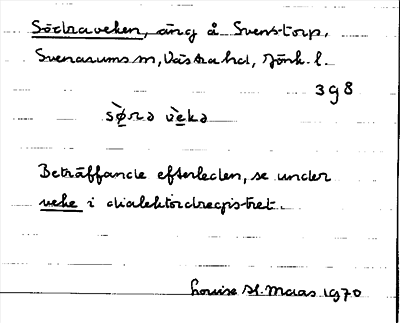 Södraveken, äng å Svenstorp,
Svenarums sn, Västra hd, Jönk. l.
398
sø̀ra vèka
Beträffande efterleden, se under
veke i dialektordregistret.
Louise H. Maas 1970